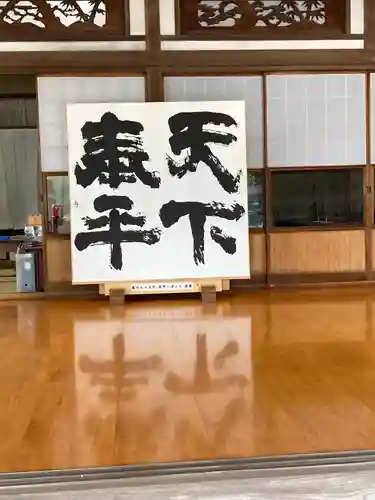 天下
泰平